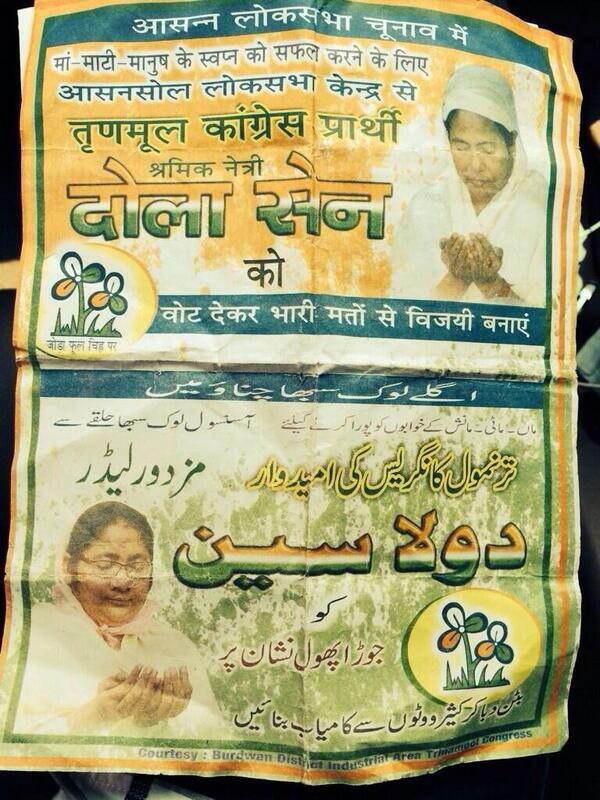 आसन्न लोकसभा चुनाव में
मां-माटी-मानुष के स्वप्न को सफल करने के लिए
आसनसोल लोकसभा केन्द्र से
तृणमूल कांग्रेस प्रार्थी
श्रमिक नेत्री
दोला सेन
को
जोडा फूल चिह्न पर
वोट देकर भारी मतों से विजयी बनाएं
اگلے لوک سبھا چناؤ میں
ماں۔ماٹی۔مانش کے خوابوں کو پورا کرنے کیلئے آسنسول لوک سبھا حلقے سے
ترنمول کانگریس کی امیدوار مزدور لیڈر
دولا سین
کو
جوڑا پھول نشان پر
بٹن دبا کر کثیر ووٹوں سے کامیاب بنائیں
Courtesy : Burdwan District Industrial Area Trinamool Congress